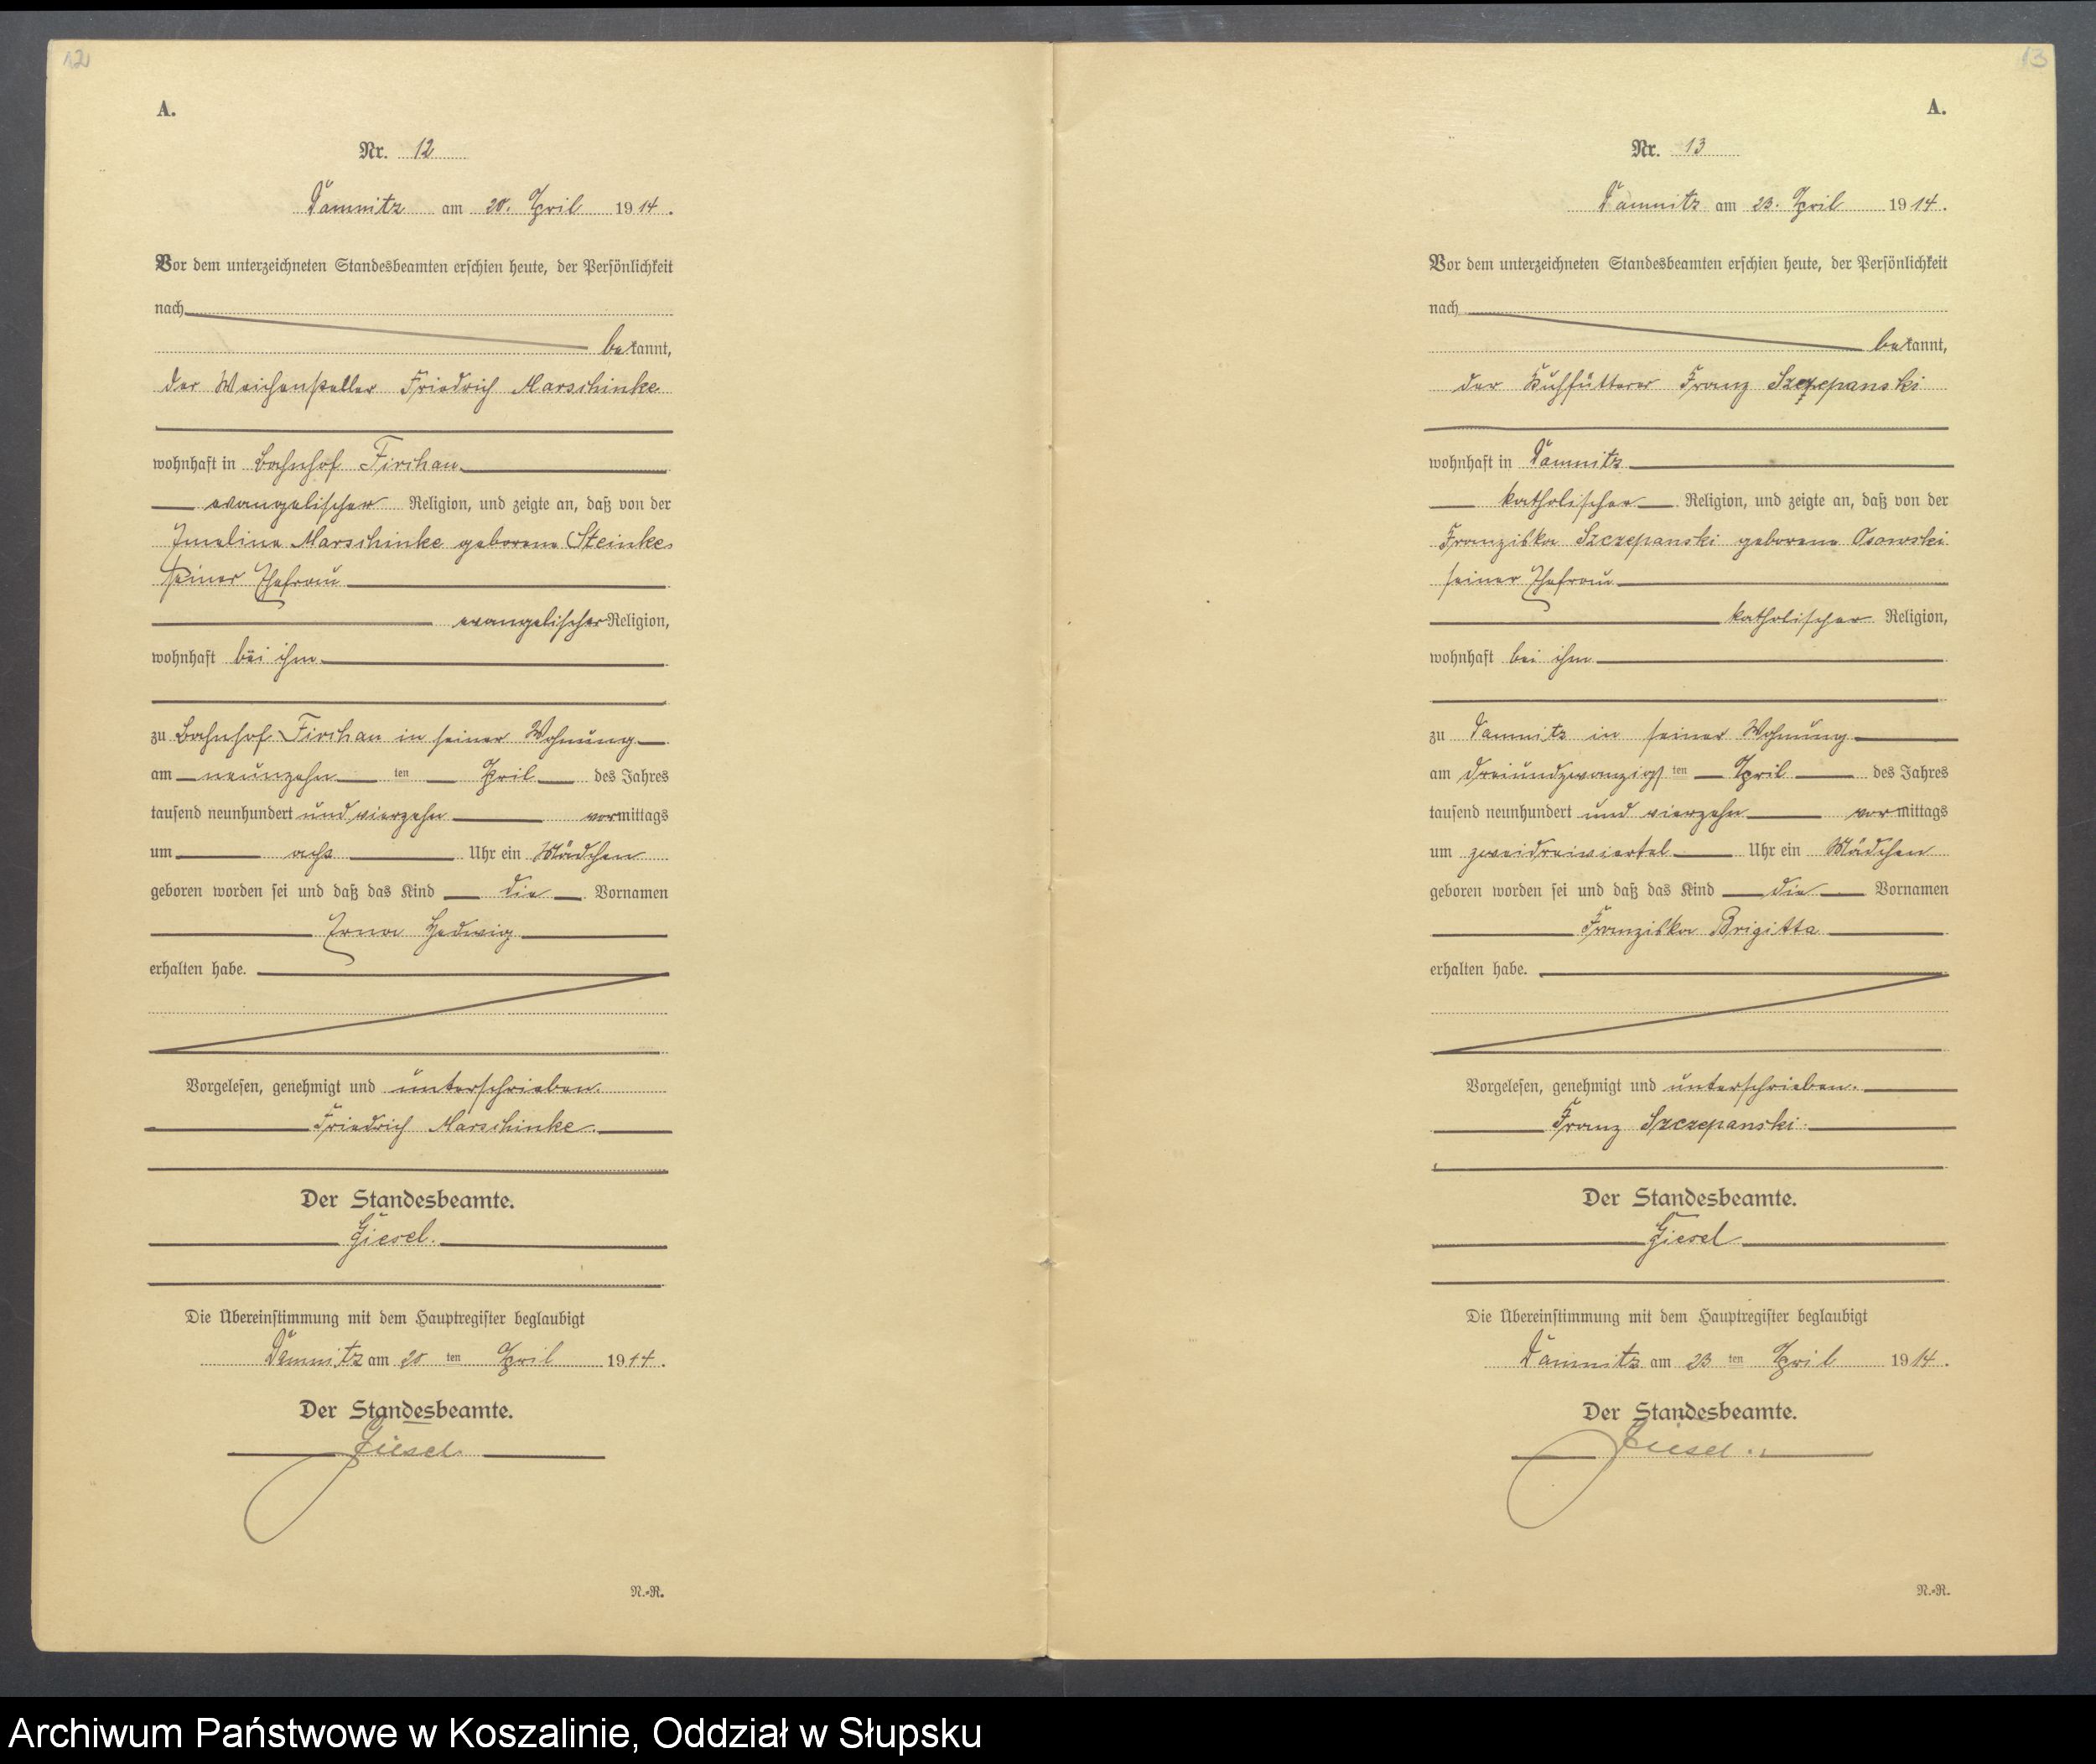 12
A.
Nr. 12
Damnitz am 20. April 1914.
Vor dem unterzeichneten Standesbeamten erschien heute, der Persönlichkeit
nach
bekannt,
der Weichensteller Friedrich Marschinke
wohnhaft in Bahnhof Firchau
evangelischer Religion, und zeigte an, daß von der
Marschinke geborene Steinke
seiner Ehefrau
evangelischer Religion,
wohnhaft bei ihm
zu Bahnhof Firchau in seiner Wohnung
am neunzehn ten April des Jahres
tausend neunhundert und vierzehn vormittags
um acht Uhr ein Mädchen
geboren worden sei und daß das Kind die Vornamen
Erna Hedwig
erhalten habe.
Vorgelesen, genehmigt und unterschrieben.
Friedrich Marschinke.
Der Standesbeamte.
Giesel.
Die Übereinstimmung mit dem Hauptregister beglaubigt
Damnitz am 20 ten April 1914.
Der Standesbeamte.
Giesel.
N.-R.
13
A.
Nr. 13
Damnitz am 23. April 1914.
Vor dem unterzeichneten Standesbeamten erschien heute, der Persönlichkeit
nach
bekannt,
der Kuhfütterer Franz Szczepanski
wohnhaft in Damnitz
katholischer Religion, und zeigte an, daß von der
Franziska Szczepanski geborene Osowski
seiner Ehefrau
katholischer Religion,
wohnhaft bei ihm
zu Damnitz in seiner Wohnung
am dreiundzwanzigs ten April des Jahres
tausend neunhundert und vierzehn vormittags
um zweidreiviertel Uhr ein Mädchen
geboren worden sei und daß das Kind die Vornamen
Franziska Brigitta
erhalten habe.
Vorgelesen, genehmigt und unterschrieben.
Franz Szczepanski.
Der Standesbeamte.
Giesel
Die Übereinstimmung mit dem Hauptregister beglaubigt
Damnitz am 23 ten April 1914.
Der Standesbeamte.
Giesel.
N.-R.
Archiwum Państwowe w Koszalinie, Oddział w Słupsku